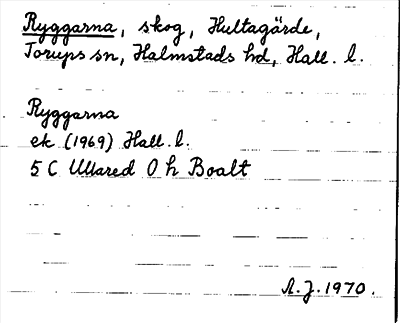 Ryggarna, skog, Hultagärde,
Torups sn, Halmstads hd, Hall. l.
Ryggarna
ek (1969) Hall. l.
5 C Ullared 0 h Boalt
A.J. 1970.